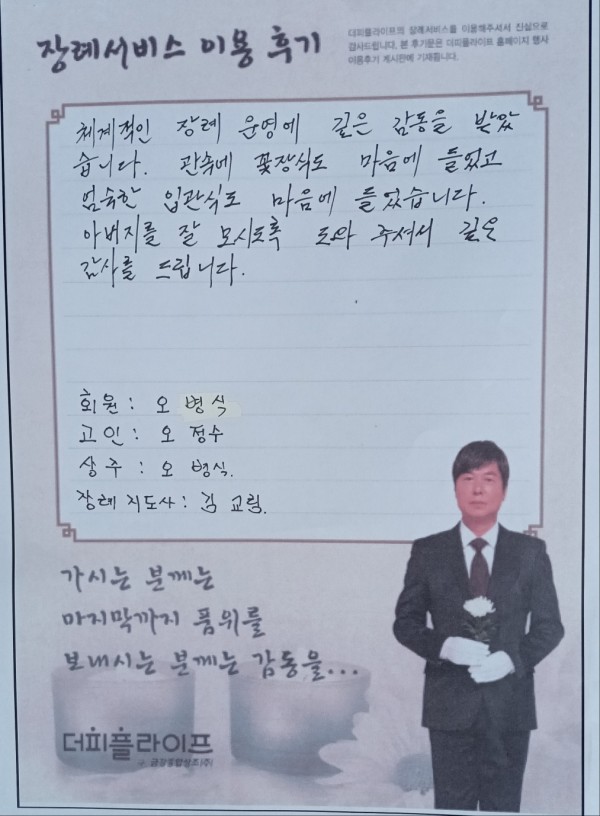 장례서비스 이용 후기
더피플라이프의 장례서비스를 이용해주셔서 진심으로
감사드립니다. 본 후기문은 더피플라이프 홈페이지 행사
이용후기 게시판에 기재됩니다.
체계적인 장례 운영에 깊은 감동을 받았
습니다. 관속에 꽃장식도 마음에 들었고
엄숙한 입관식도 마음에 들었습니다.
아버지를 잘 모시도록 도와 주셔서 깊은
감사를 드립니다.
회원: 오 병식
고인: 오 정수
상주: 오 병식.
장례지도사: 김 교림.
가시는 분께는
마지막까지 품위를
보내시는 분께는 감동을...
더피플라이프
금강종합상조(주)